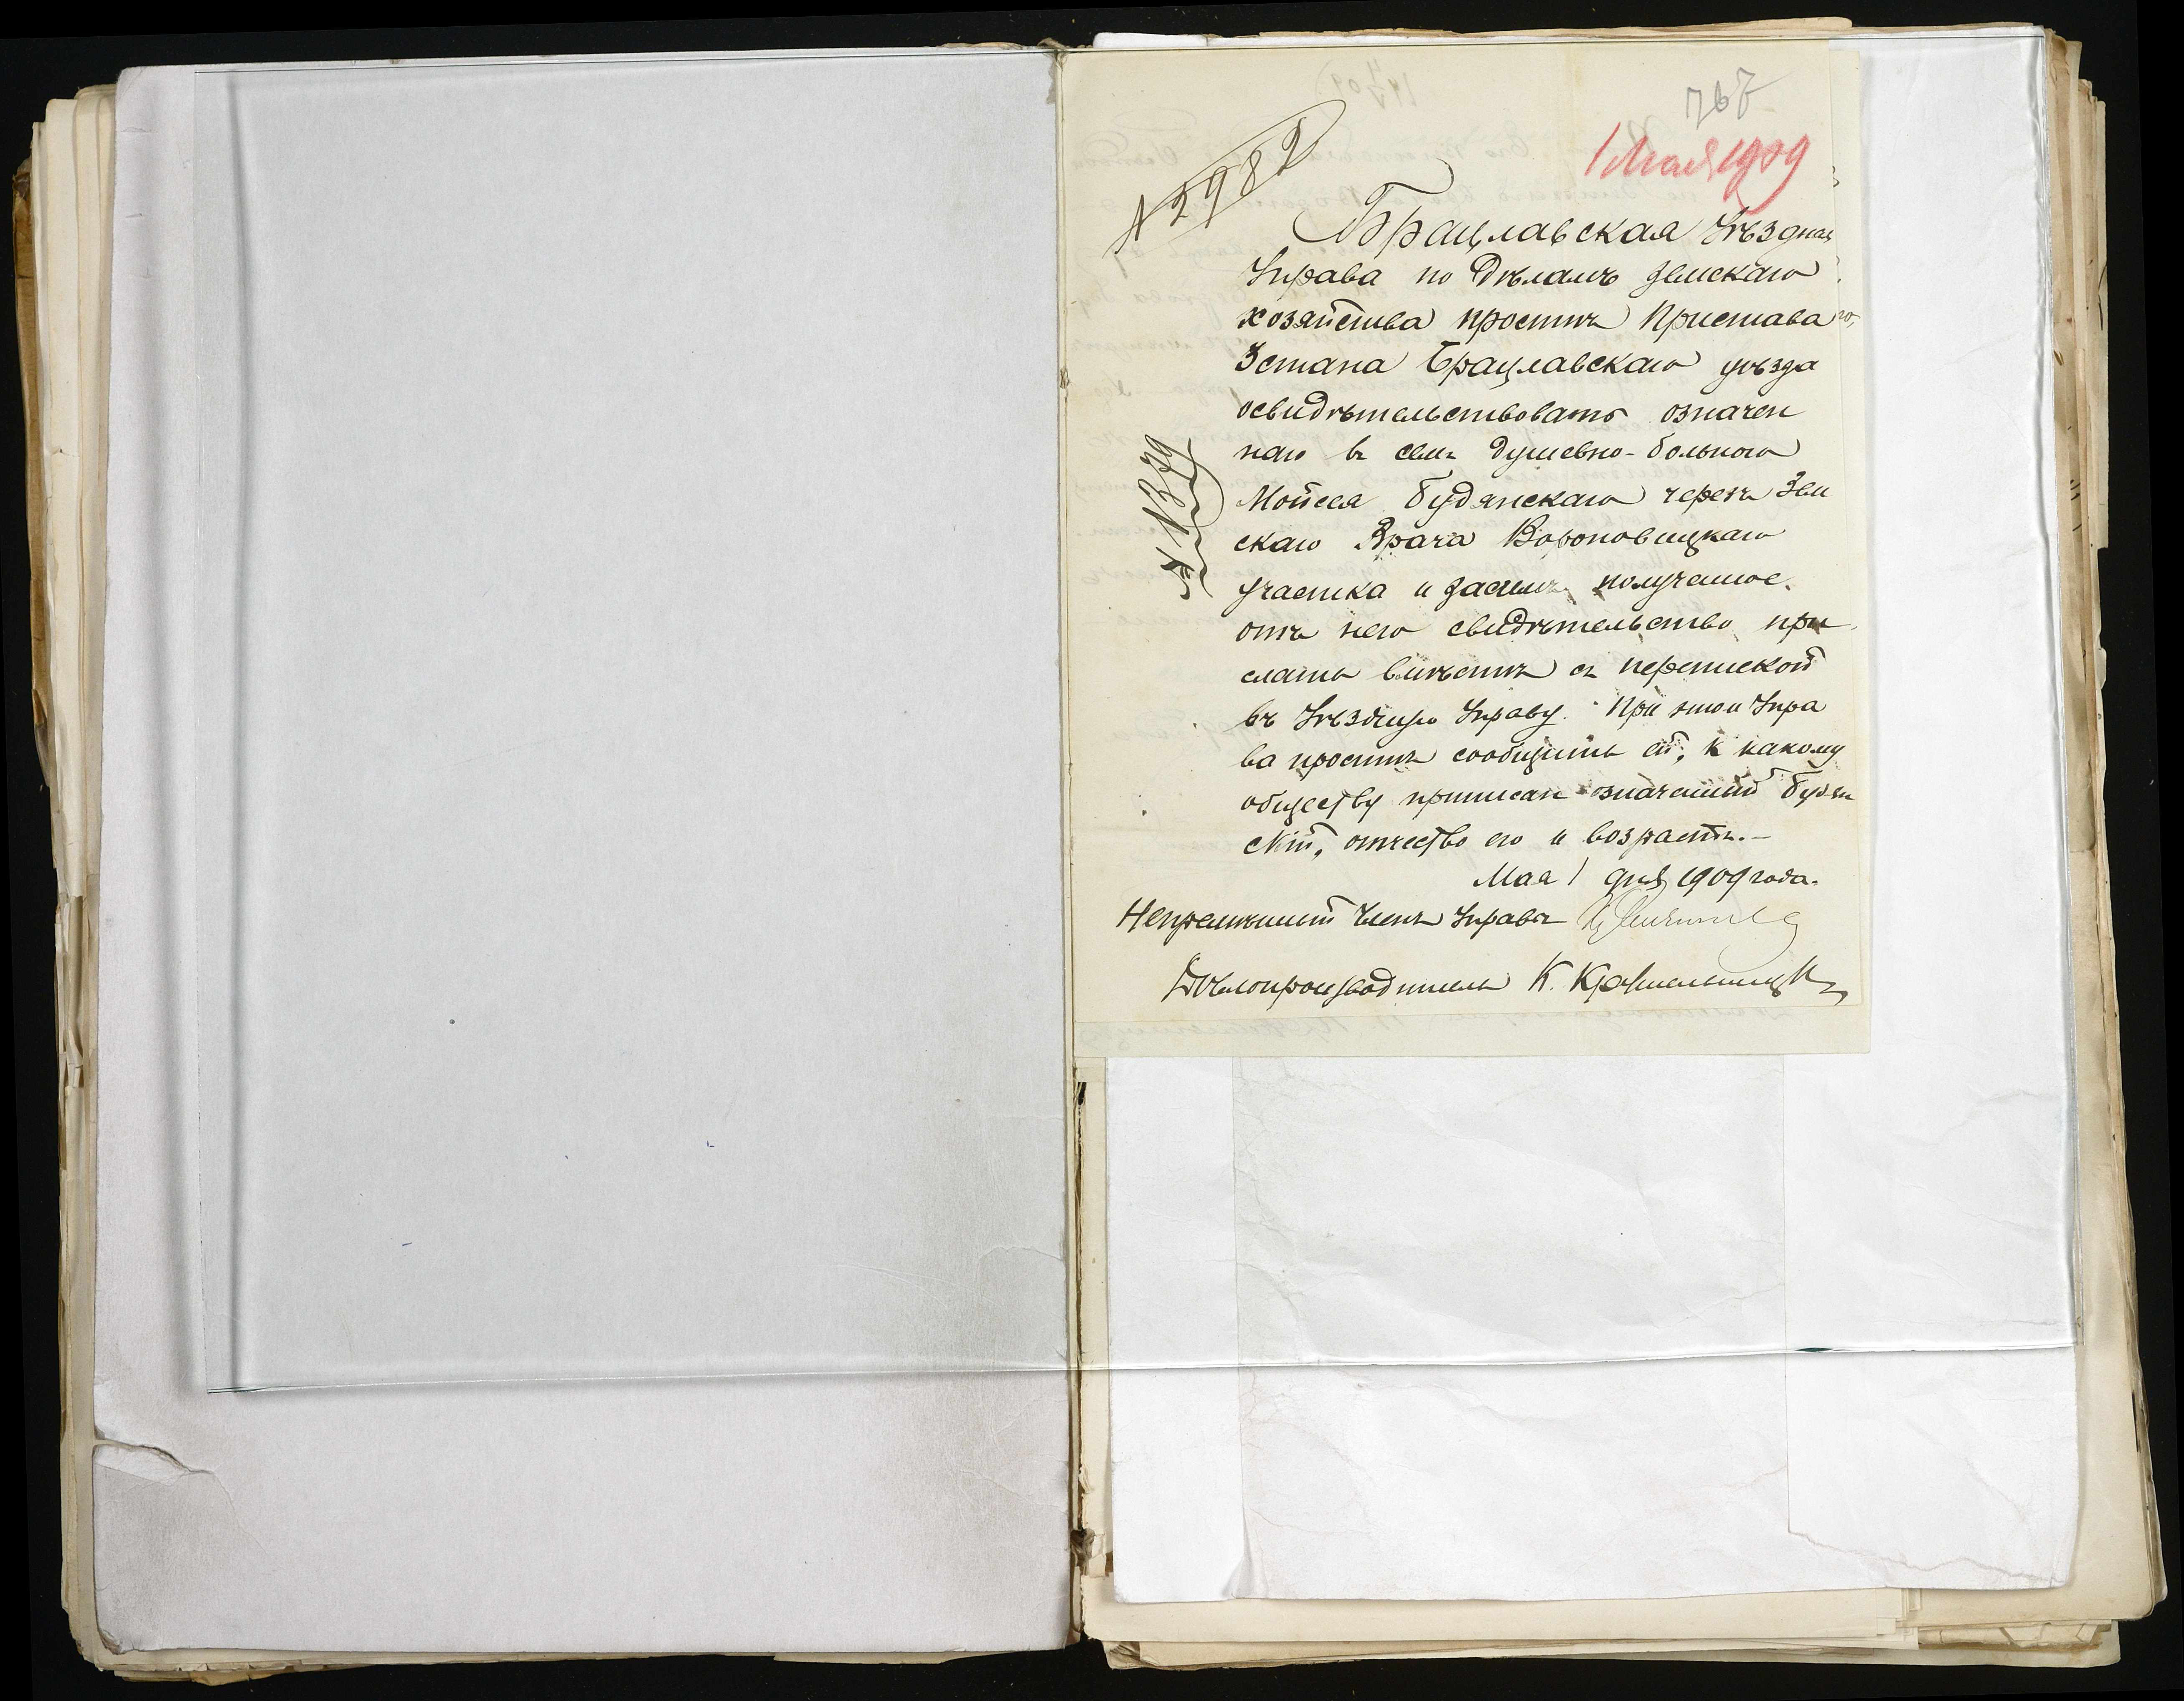 767
1 Мая 1909
№ 2982
Брацлавская Уѣздная
Управа по Дѣламъ Земскаго
хозяйства проситъ Пристава
3 стана Брацлавскаго уѣзда
освидѣтельствовать означен
наго въ семъ душевно-больного
Мойсея Будянскаго черезъ Зем
скаго Врача Вороновицкаго
участка и затѣмъ полученное
отъ него свидѣтельство при
слать вмѣстѣ съ перепиской
въ Уѣздную Управу. При этом Упра
ва проситъ сообщить ей, к какому
обществу приписан означенный Будян
скій, отчество его и возрастъ.—
Мая 1 дня 1909 года.
№ 1379
Непремѣнный Членъ Управы
Дѣлопроизводитель К.